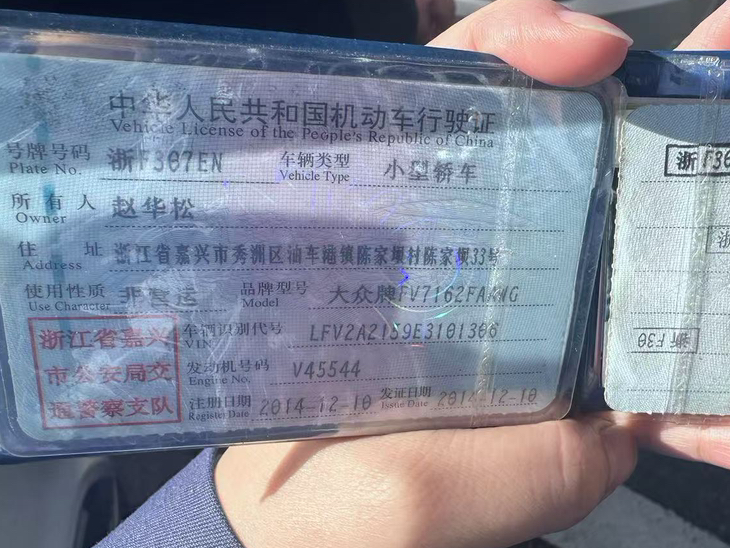 中华人民共和国机动车行驶证
Vehicle License of the People's Republic of China
号牌号码 浙F307EN 车辆类型 小型轿车
Plate No. Vehicle Type
所有人 赵华松
Owner
住址 浙江省嘉兴市秀洲区油车港镇陈家坝村陈家坝33号
Address
使用性质 非营运 品牌型号 大众牌FV7162FAAWG
Use Character Model
浙江省嘉兴
市公安局交
通警察支队
车辆识别代号 LFV2A2159E3101306
VIN
发动机号码 V45544
Engine No.
注册日期 2014-12-10 发证日期 2014-12-10
Register Date Issue Date
浙F30
浙
浙F30